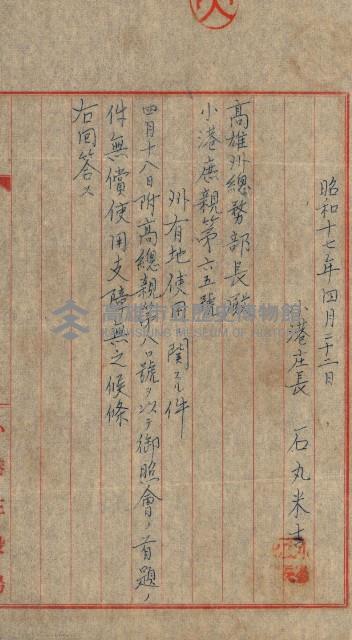 昭和十七年四月二十二日
港庄長 石丸米吉
高雄州總務部長殿
小港庶親第六五號
州有地使用ノ關スル件
四月十八日附高總親第八〇號ヲ以テ御照會ノ首題ノ
件無償使用支障無之候條
右回答ス
高雄市立歷史博物館
KAOHSIUNG MUSEUM OF HISTORY